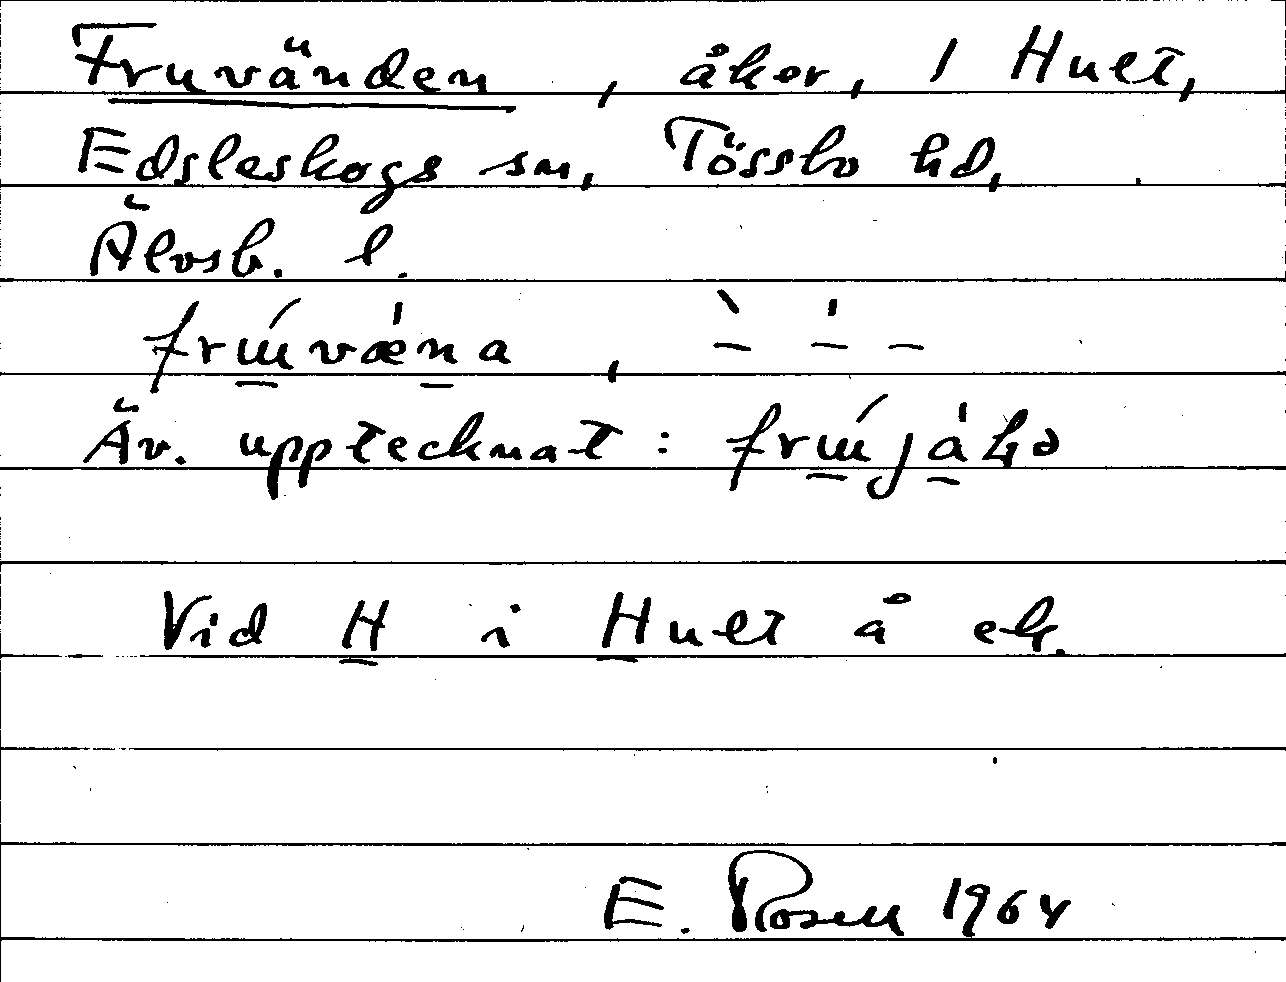 Fruvänden, åker, 1 Hult,
Edsleskogs sn, Tössbo hd,
Älvsb. l.
frɯ́væ̍na, `- '- -
Äv. upptecknat: frɯ́jå̍kə
Vid H i Hult å ek.
E. Rosell 1964